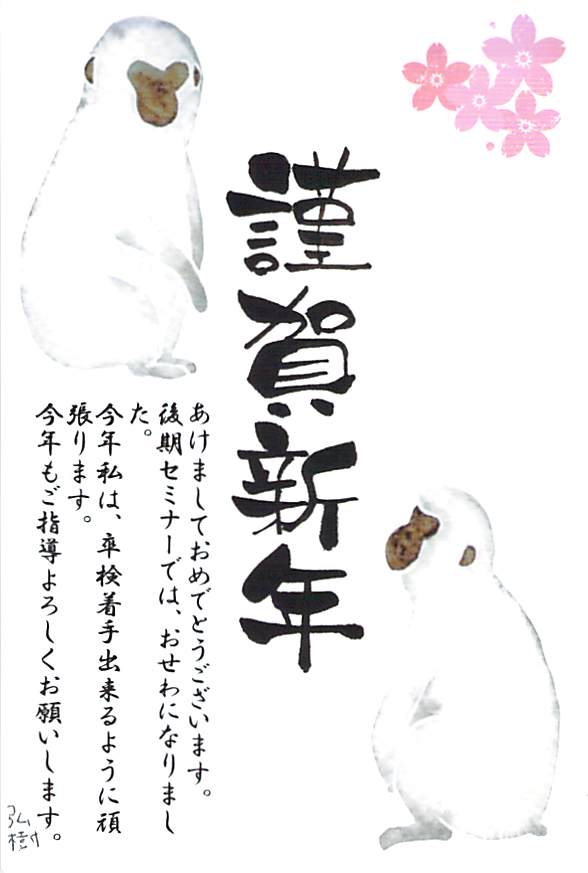 謹賀新年
あけましておめでとうございます。
後期セミナーでは、おせわになりまし
た。
今年私は、卒検着手出来るように頑
張ります。
今年もご指導よろしくお願いします。
弘樹